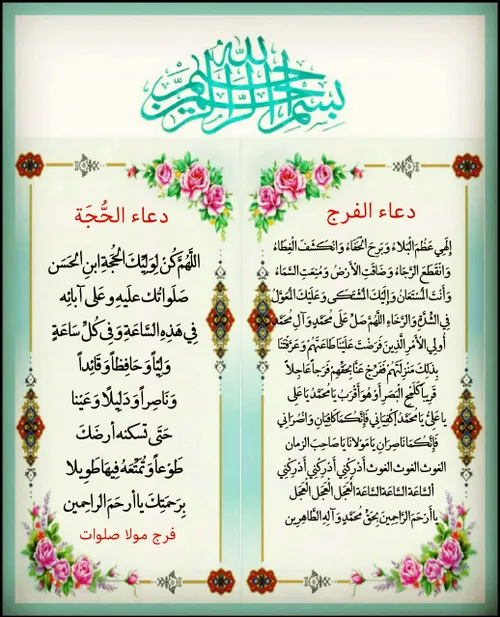 بِسْمِ اللهِ الرَّحْمنِ الرَّحِيمِ
دعاء الفرج
إِلٰهِي عَظُمَ الْبَلاءُ وَبَرِحَ الْخَفَاءُ وَانْكَشَفَ الْغِطَاءُ
وَانْقَطَعَ الرَّجَاءُ وَضَاقَتِ الأَرْضُ وَمُنِعَتِ السَّمَاءُ
وَأَنْتَ الْمُسْتَعَانُ وَإِلَيْكَ الْمُشْتَكى وَعَلَيْكَ الْمُعَوَّلُ
فِي الشِّدَّةِ وَالرَّخَاءِ اللّهُمَّ صَلِّ عَلَى مُحَمَّدٍ وَآلِ مُحَمَّدٍ
أُولِي الأَمْرِ الَّذِينَ فَرَضْتَ عَلَيْنَا طَاعَتَهُمْ وَعَرَّفْتَنَا
بِذلِكَ مَنْزِلَتَهُمْ فَفَرِّجْ عَنَّا بِحَقِّهِمْ فَرَجاً عَاجِلاً
قَرِيباً كَلَمْحِ الْبَصَرِ أَوْ هُوَ أَقْرَبُ يَا مُحَمَّدُ يَا عَلِى
يا عَلِىُّ يَا مُحَمَّدُ اكْفِيَانِي فَإِنَّكُمَا كَافِيَانِ وَانْصُرَانِي
فَإِنَّكُمَا نَاصِرَانِ يَا مَوْلانَا يَا صَاحِبَ الزمان
الغوث الغوث الغوث أَدْرِكْنِي أَدْرِكْنِي أَدْرِكْنِي
السَّاعَةَ السَّاعَةَ السَّاعَةَ الْعَجَلَ الْعَجَلَ الْعَجَلَ
يا أَرْحَمَ الرَّاحِمِينَ بِحَقِّ مُحَمَّدٍ وَآلِهِ الطَّاهِرِين
دعاء الحُّجَة
اللَّهُمَّ كُنْ لِوَلِيِّكَ الْحُجَّةِ ابنِ الحَسَن
صَلَواتُك علَيهِ و عَلى آبائِه
فِي هَذِهِ السَّاعَةِ وَفِي كُلِّ سَاعَةٍ
وَلِيّاً وَحَافِظاً وَ قَائِداً
وَ نَاصِراً وَ دَلِيلًا وَ عَيْنا
حَتَّى تُسكِنَه أرضَكَ
طَوْعاً وَ تُمَتِّعَهُ فِيهَا طَوِيلا
بِرَحمَتِكَ يا أرحَمَ الراحِمين
فرج مولا صلوات